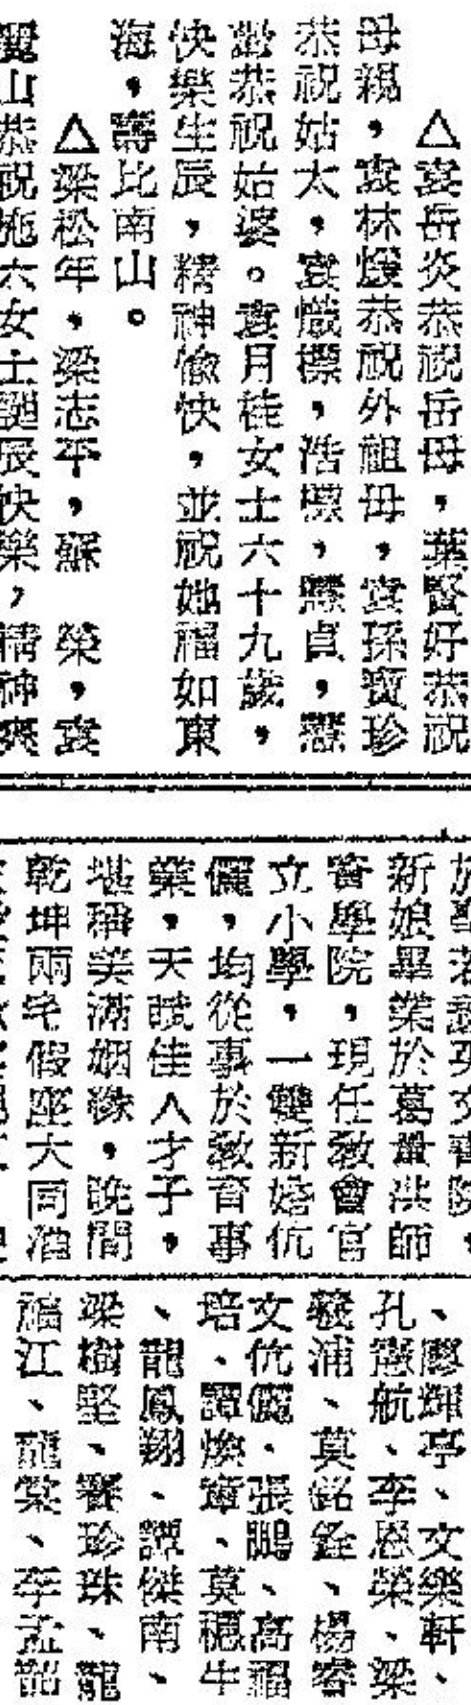 △袁岳炎恭祝岳母,葉賢好恭祝
母親,袁林煖恭祝外祖母,袁孫寶珍
恭祝姑太,袁熾標,浩標,麗貞,
恭祝姑婆。袁月桂女士六十九歲,
快樂生辰,精神愉快,並祝她福如東
海,壽比南山。
△梁松年,梁志平,蘇 榮,袁
寶山恭祝施六女士誕辰快樂,精神爽
新娘畢業於葛量洪師
資學院,現任教會官
立小學,一雙新婚伉
儷,均從事於教育事
業,天賦佳人才子,
堪稱美滿姻緣,晚間
乾坤兩宅假座大同酒
、廖輝亭、文樂軒、
孔憲航、李恩榮、梁
浦、莫銘銓、楊睿
文伉儷、張鵬、高福
培、譚煥章、莫穩牛
、龍鳳翔、譚傑南、
梁樹堅、養珍珠、龍
福江、龍棠、李孟韶